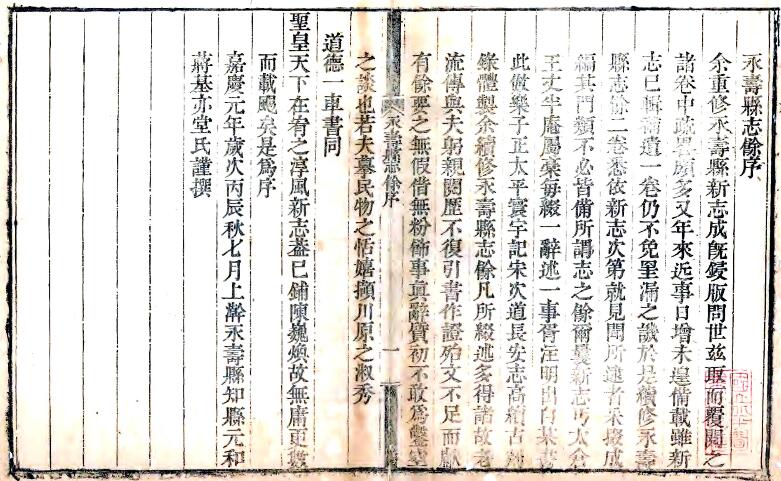 永壽縣志餘序
余重修永壽縣新志成旣鋟版問世兹取而覆閱之
諸卷中疏畧頗多又年來近事日增未遑備載雖新
志已輯補遺一卷仍不免罣漏之譏於是續修永壽
縣志餘二卷悉依新志次第就見聞所逮者采掇成
編其門類不必皆備所謂志之餘爾曩新志丐太倉
王丈半庵屬稾每綴一辭述一事胥注明出自某書
此倣樂子正太平寰宇記宋次道長安志高續古剡
錄體製余續修永壽縣志餘凡所綴述多得諸故老
流傳與夫躬親閱歷不復引書作證殆文不足而獻
有餘要之無假借無粉飾事眞辭質初不敢爲鑿空
永壽縣志餘序
一
之談也若夫摹民物之恬嬉擷川原之淑秀
道德一車書同
聖皇天下在宥之淳風新志葢已鋪陳巍煥故無庸更敘
而載颺矣是爲序
嘉慶元年歲次丙辰秋七月上澣永壽縣知縣元和
蔣基亦堂氏謹撰